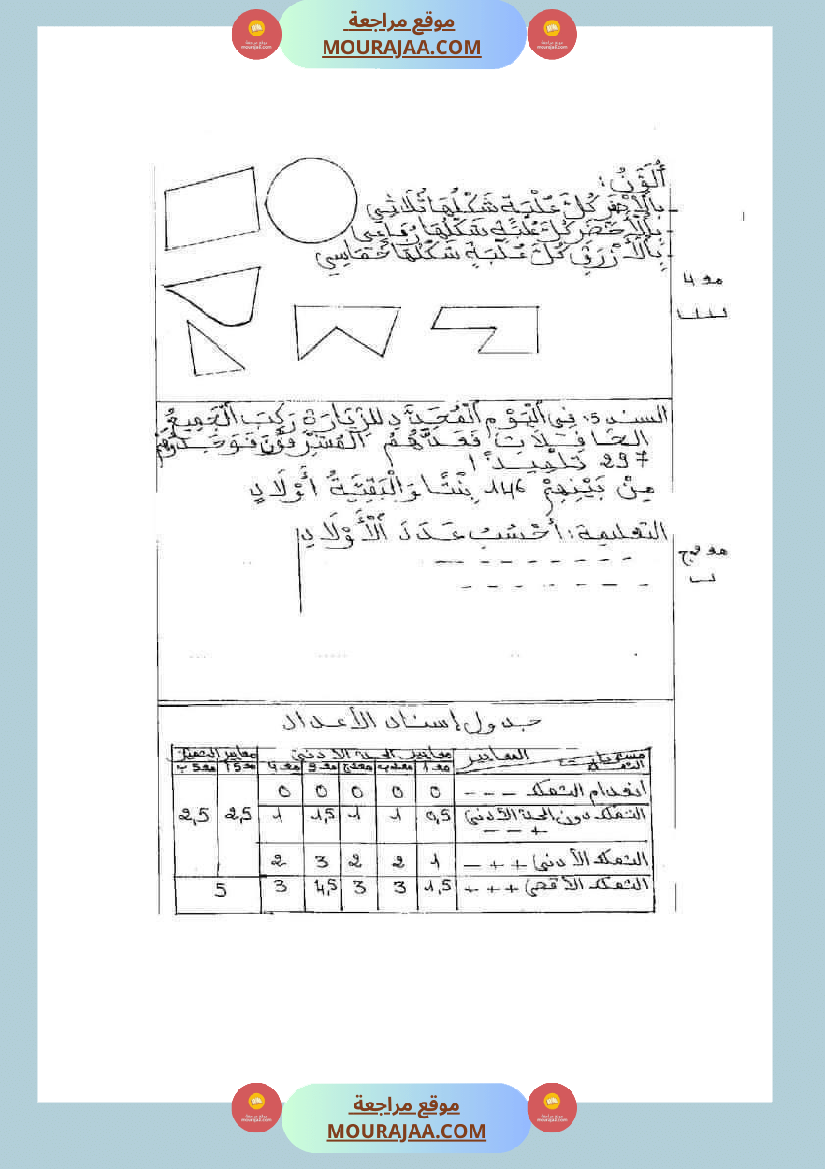 موقع مراجعة
MOURAJAA.COM
أُلَوِّنُ:
- بِالْأَحْمَرِ كُلَّ عُلْبَةٍ شَكْلُهَا ثُلَاثِي
- بِالْأَخْضَرِ كُلَّ عُلْبَةٍ شَكْلُهَا رُبَاعِي
- بِالْأَزْرَقِ كُلَّ عُلْبَةٍ شَكْلُهَا خُمَاسِي
مع 4
السند 5: فِي الْيَوْمِ الْمُحَدَّدِ لِلزِّيَارَةِ رَكِبَ الْجَمِيعُ
الحَافِلَاتِ فَعَدَّهُمْ الْمُشْرِفُونَ فَوَجَدُوهُمْ
297 تلميذًا
مِنْ بَيْنِهِمْ 146 بِنْتًا وَالْبَقِيَّةُ أَوْلَادٍ
التعليمة: أَحْسُبُ عَدَدَ الْأَوْلَادِ
مع 2ج
جدول إسناد الأعداد
المعايير
معايير الحد الأدنى
معايير التميز
مع 1
مع 2ب
مع 2ج
مع 3
مع 4
مع 5أ
مع 5ب
انعدام التملك - - -
0 0 0 0 0
التملك دون الحد الأدنى
+ - -
0,5 1 1 1,5 1 2,5 2,5
التملك الأدنى + + -
1 2 2 3 2
التملك الأقصى + + +
1,5 3 3 4,5 3 5
موقع مراجعة
MOURAJAA.COM